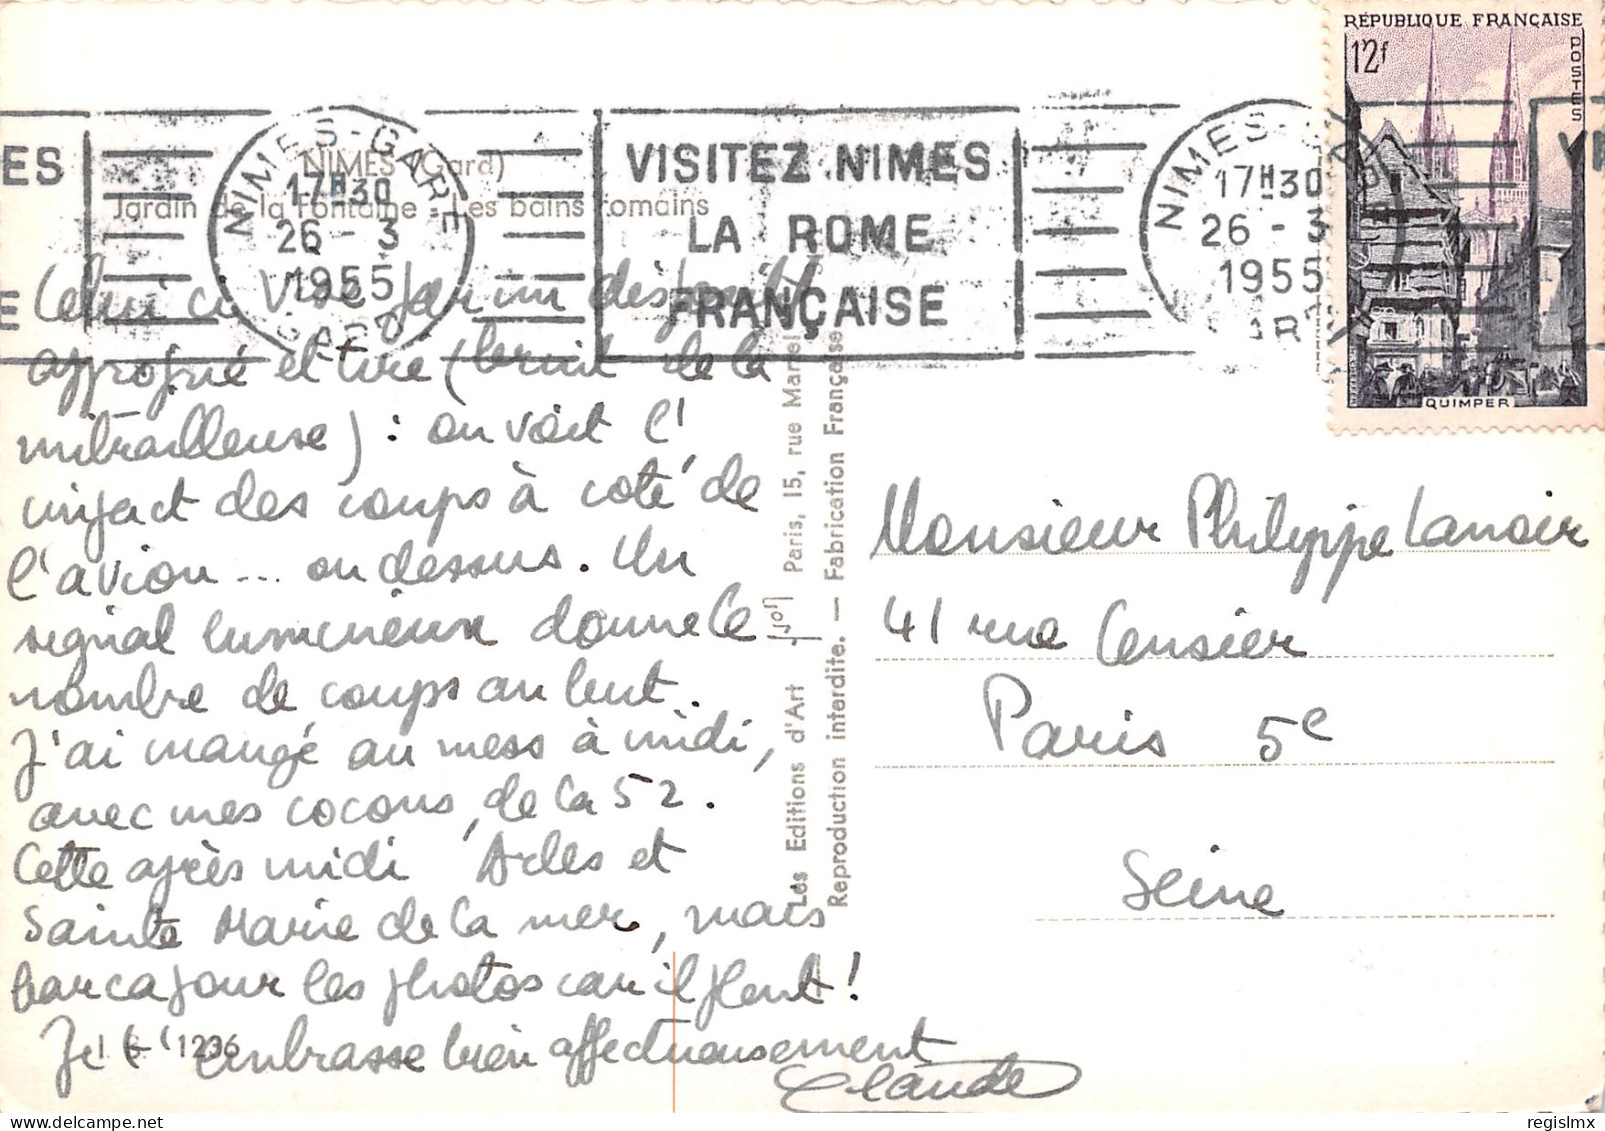 RÉPUBLIQUE FRANÇAISE
12f
POSTES
QUIMPER
ES
E
NIMES-GARE
17H30
26 - 3
1955
GARD
VISITEZ NIMES
LA ROME
FRANÇAISE
NIMES
17H30
26 - 3
1955
NIMES (Gard)
Jardin de la Fontaine - Les bains romains
Celui ci vise par un dispositif
approprié et tire (bruit de la
mitrailleuse) : on voit l'
impact des coups à coté de
l'avion ... ou dessus. Un
signal lumineux donne le
nombre de coups au but.
J'ai mangé au mess à midi,
avec mes cocons, de la 52.
Cette après midi Arles et
Sainte Marie de la mer, mais
barca pour les photos car il pleut !
Je t'embrasse bien affectueusement
Claude
1236
Les Editions d'Art Yvon Paris, 15, rue Martel
Reproduction interdite. — Fabrication Française
Monsieur Philippe Lanoir
41 rue Censier
Paris 5e
Seine
delcampe.net
regislmx